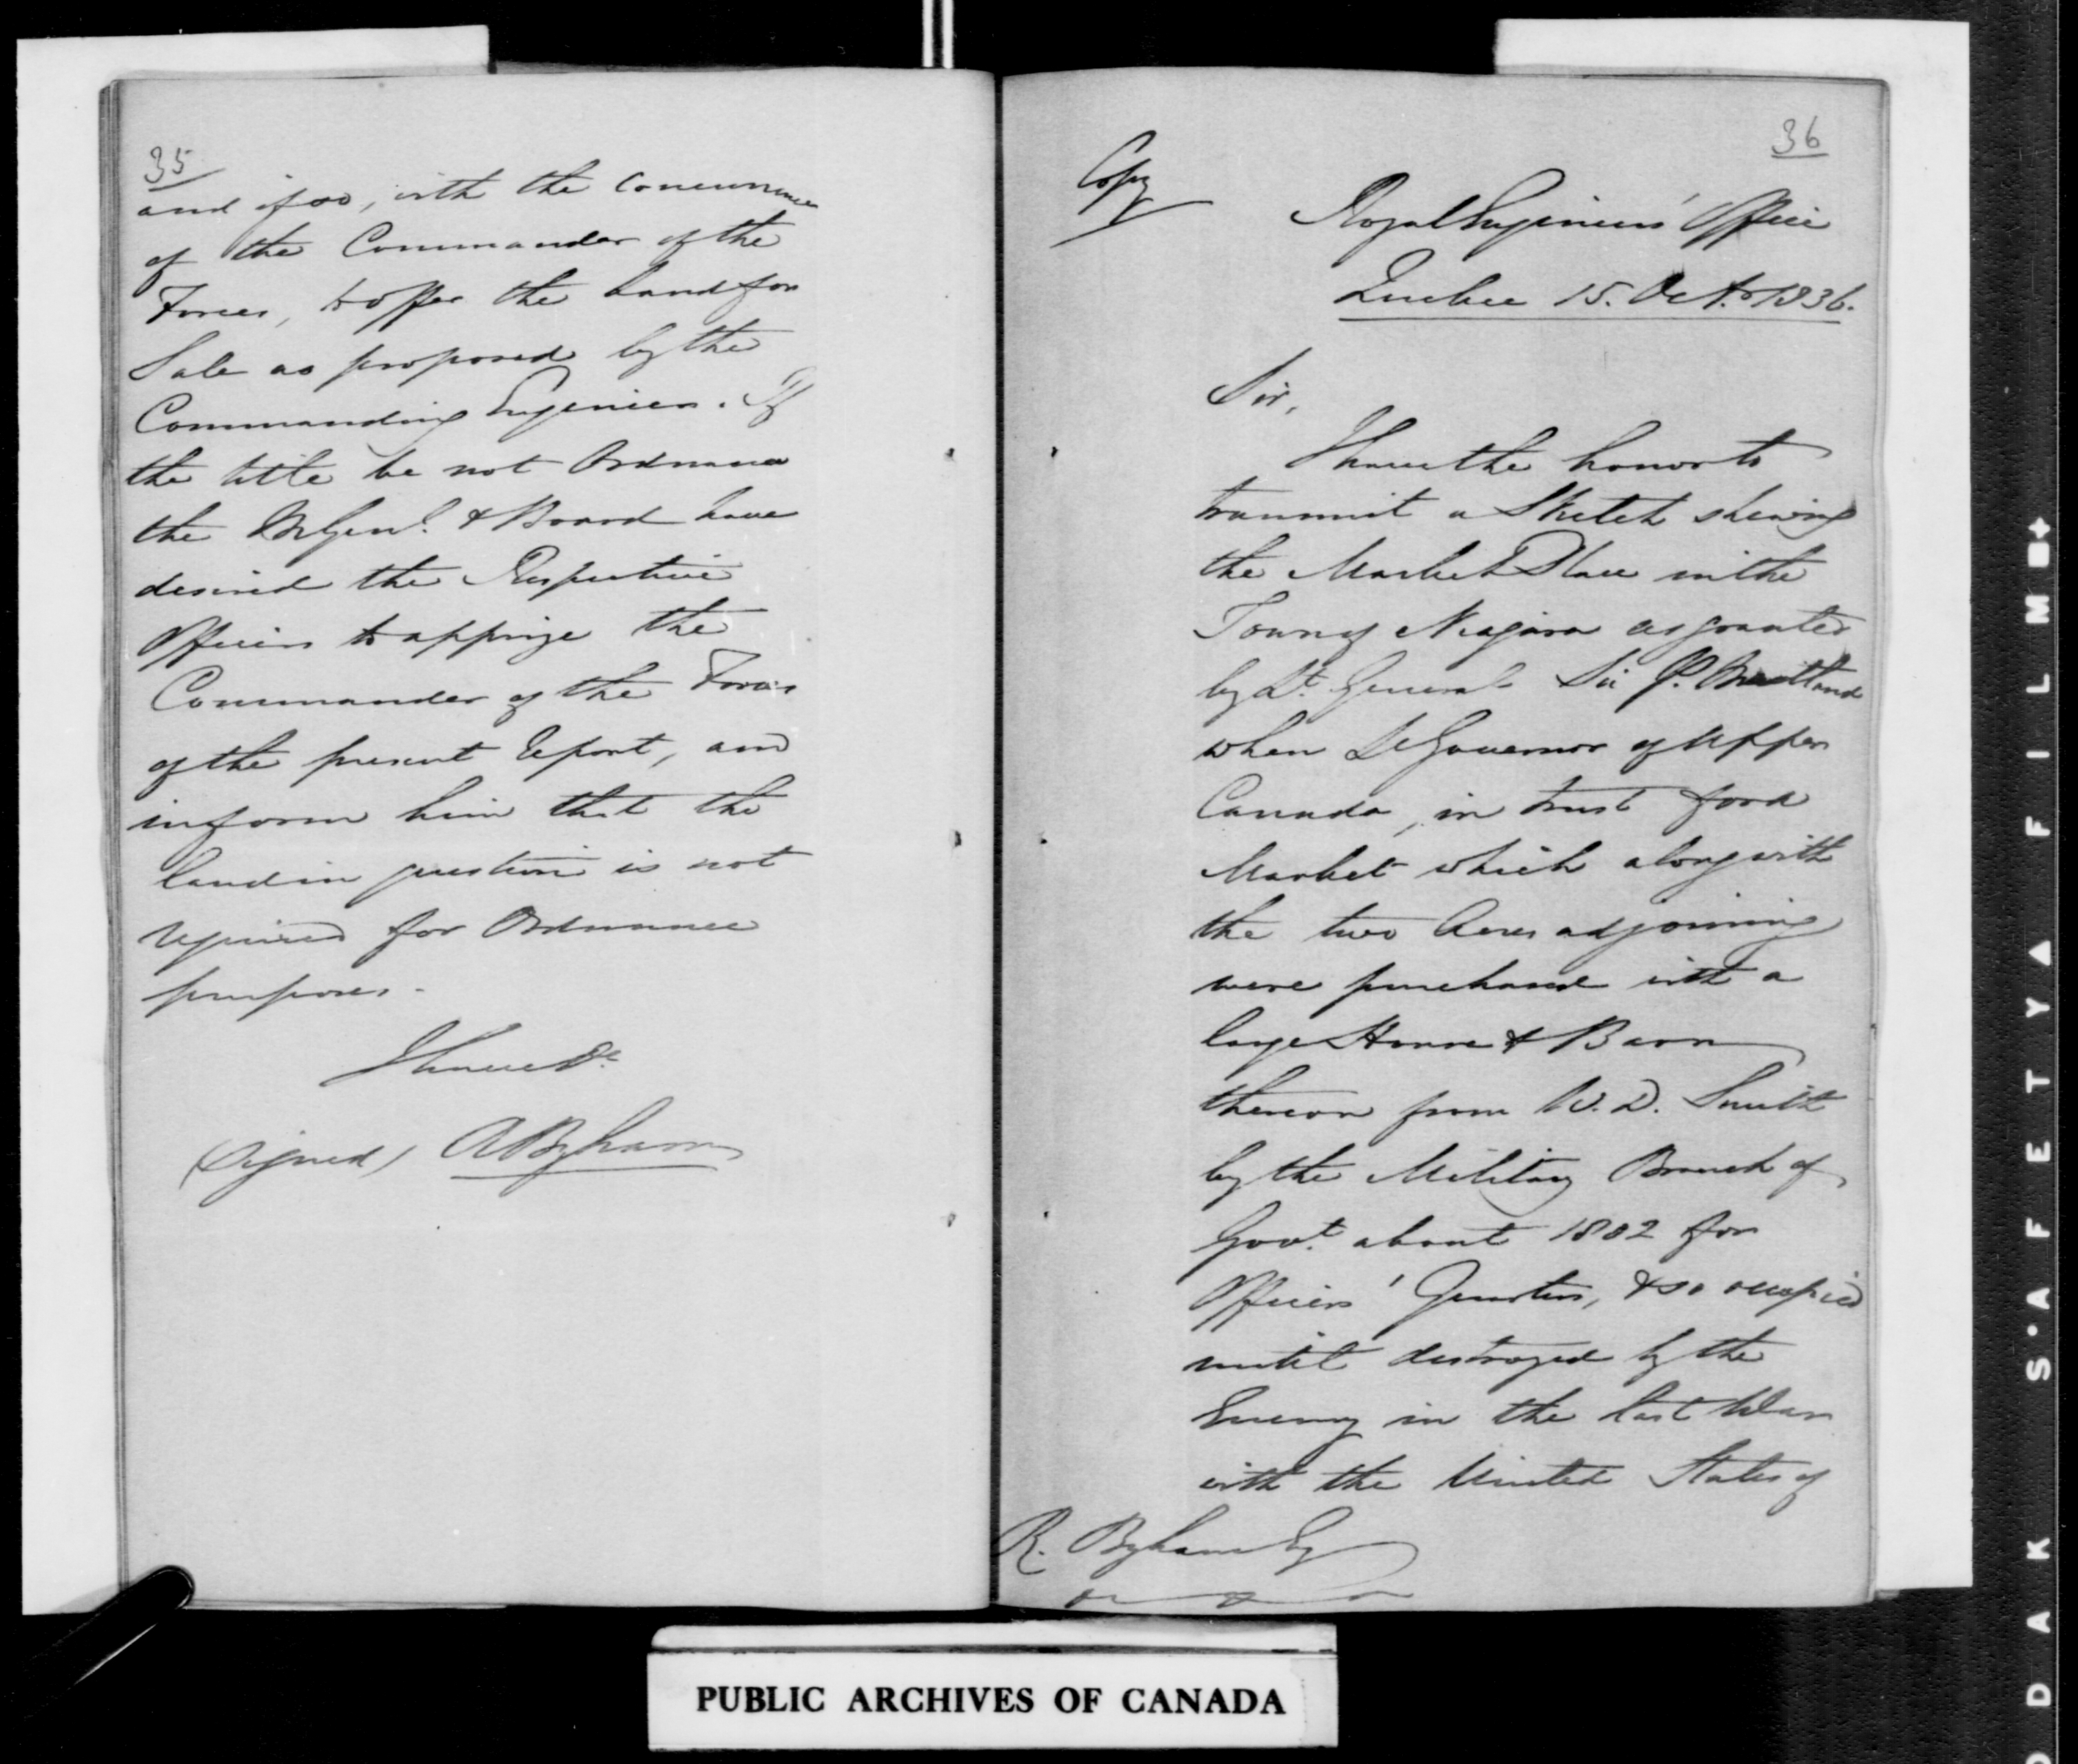 35
and if so, with the concurrence
of the Commander of the
Forces, to offer the land for
Sale as proposed by the
Commanding Engineer. If
the title be not Ordnance
the M Genl. & Board have
desired the Respective
Officers to apprize the
Commander of the Forces
of the present Report, and
inform him that the
land in question is not
required for Ordnance
purposes.
I have &c
(signed) R Byham
36
Copy
Royal Engineers' Office
Quebec 15. Octr. 1836.
Sir,
I have the honor to
transmit a Sketch shewing
the Market Place in the
Town of Niagara as granted
by Lt. General Sir P. Maitland
when Lt Governor of Upper
Canada, in trust for a
Market which along with
the two Acres adjoining
were purchased with a
large House & Barn
thereon from W. D. Smith
by the Military Branch of
Govt. about 1802 for
Officers' Quarters, & so occupied
until destroyed by the
Enemy in the last War
with the United States of
R. Byham Esq
PUBLIC ARCHIVES OF CANADA
DAK S'AFETY▲FILM■✦